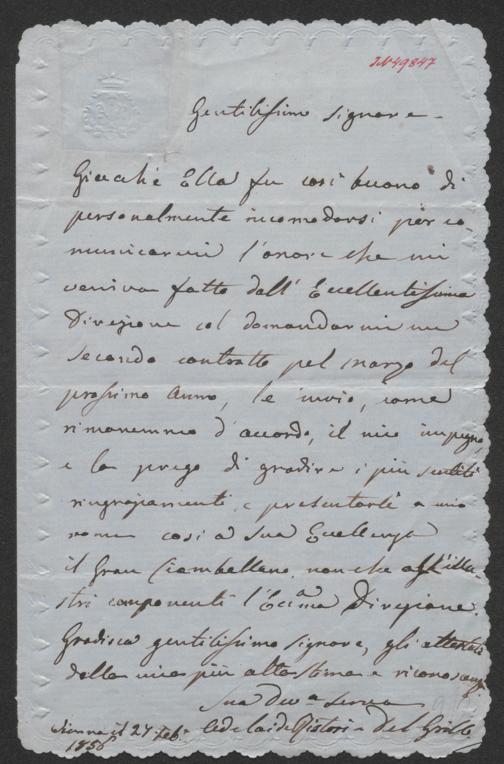 IN 49847
Gentilissimo Signore -
Giacchè Ella fu così buono di
personalmente incomodarsi per co-
municarmi l'onore che mi
veniva fatto dall'Eccellentissima
Direzione col domandarmi un
secondo contratto pel marzo del
prossimo anno, le invio, come
rimanemmo d'accordo, il mio impegno,
e la prego di gradire i più sentiti
ringraziamenti, e presentarli a mio
nome così a Sua Eccellenza
il Gran Ciambellano, non che all'illu-
stri componenti l'Ecc.ma Direzione.
Gradisca gentilissimo signore, gli attestati
della mia più alta stima e riconoscenza
Sua Dev.a serva
Vienna il 24 Feb. Adelaide Ristori Del Grillo
1856